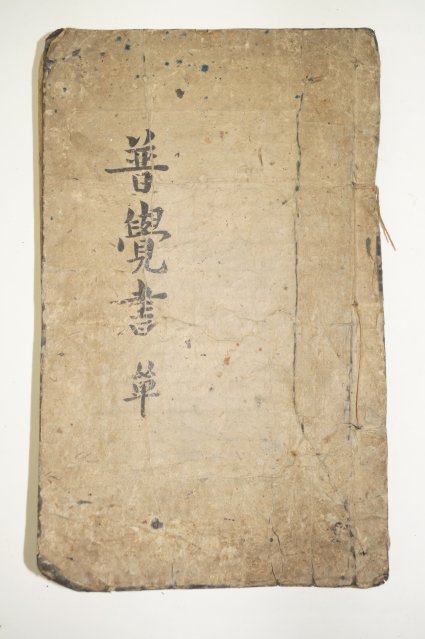 普覺書 單